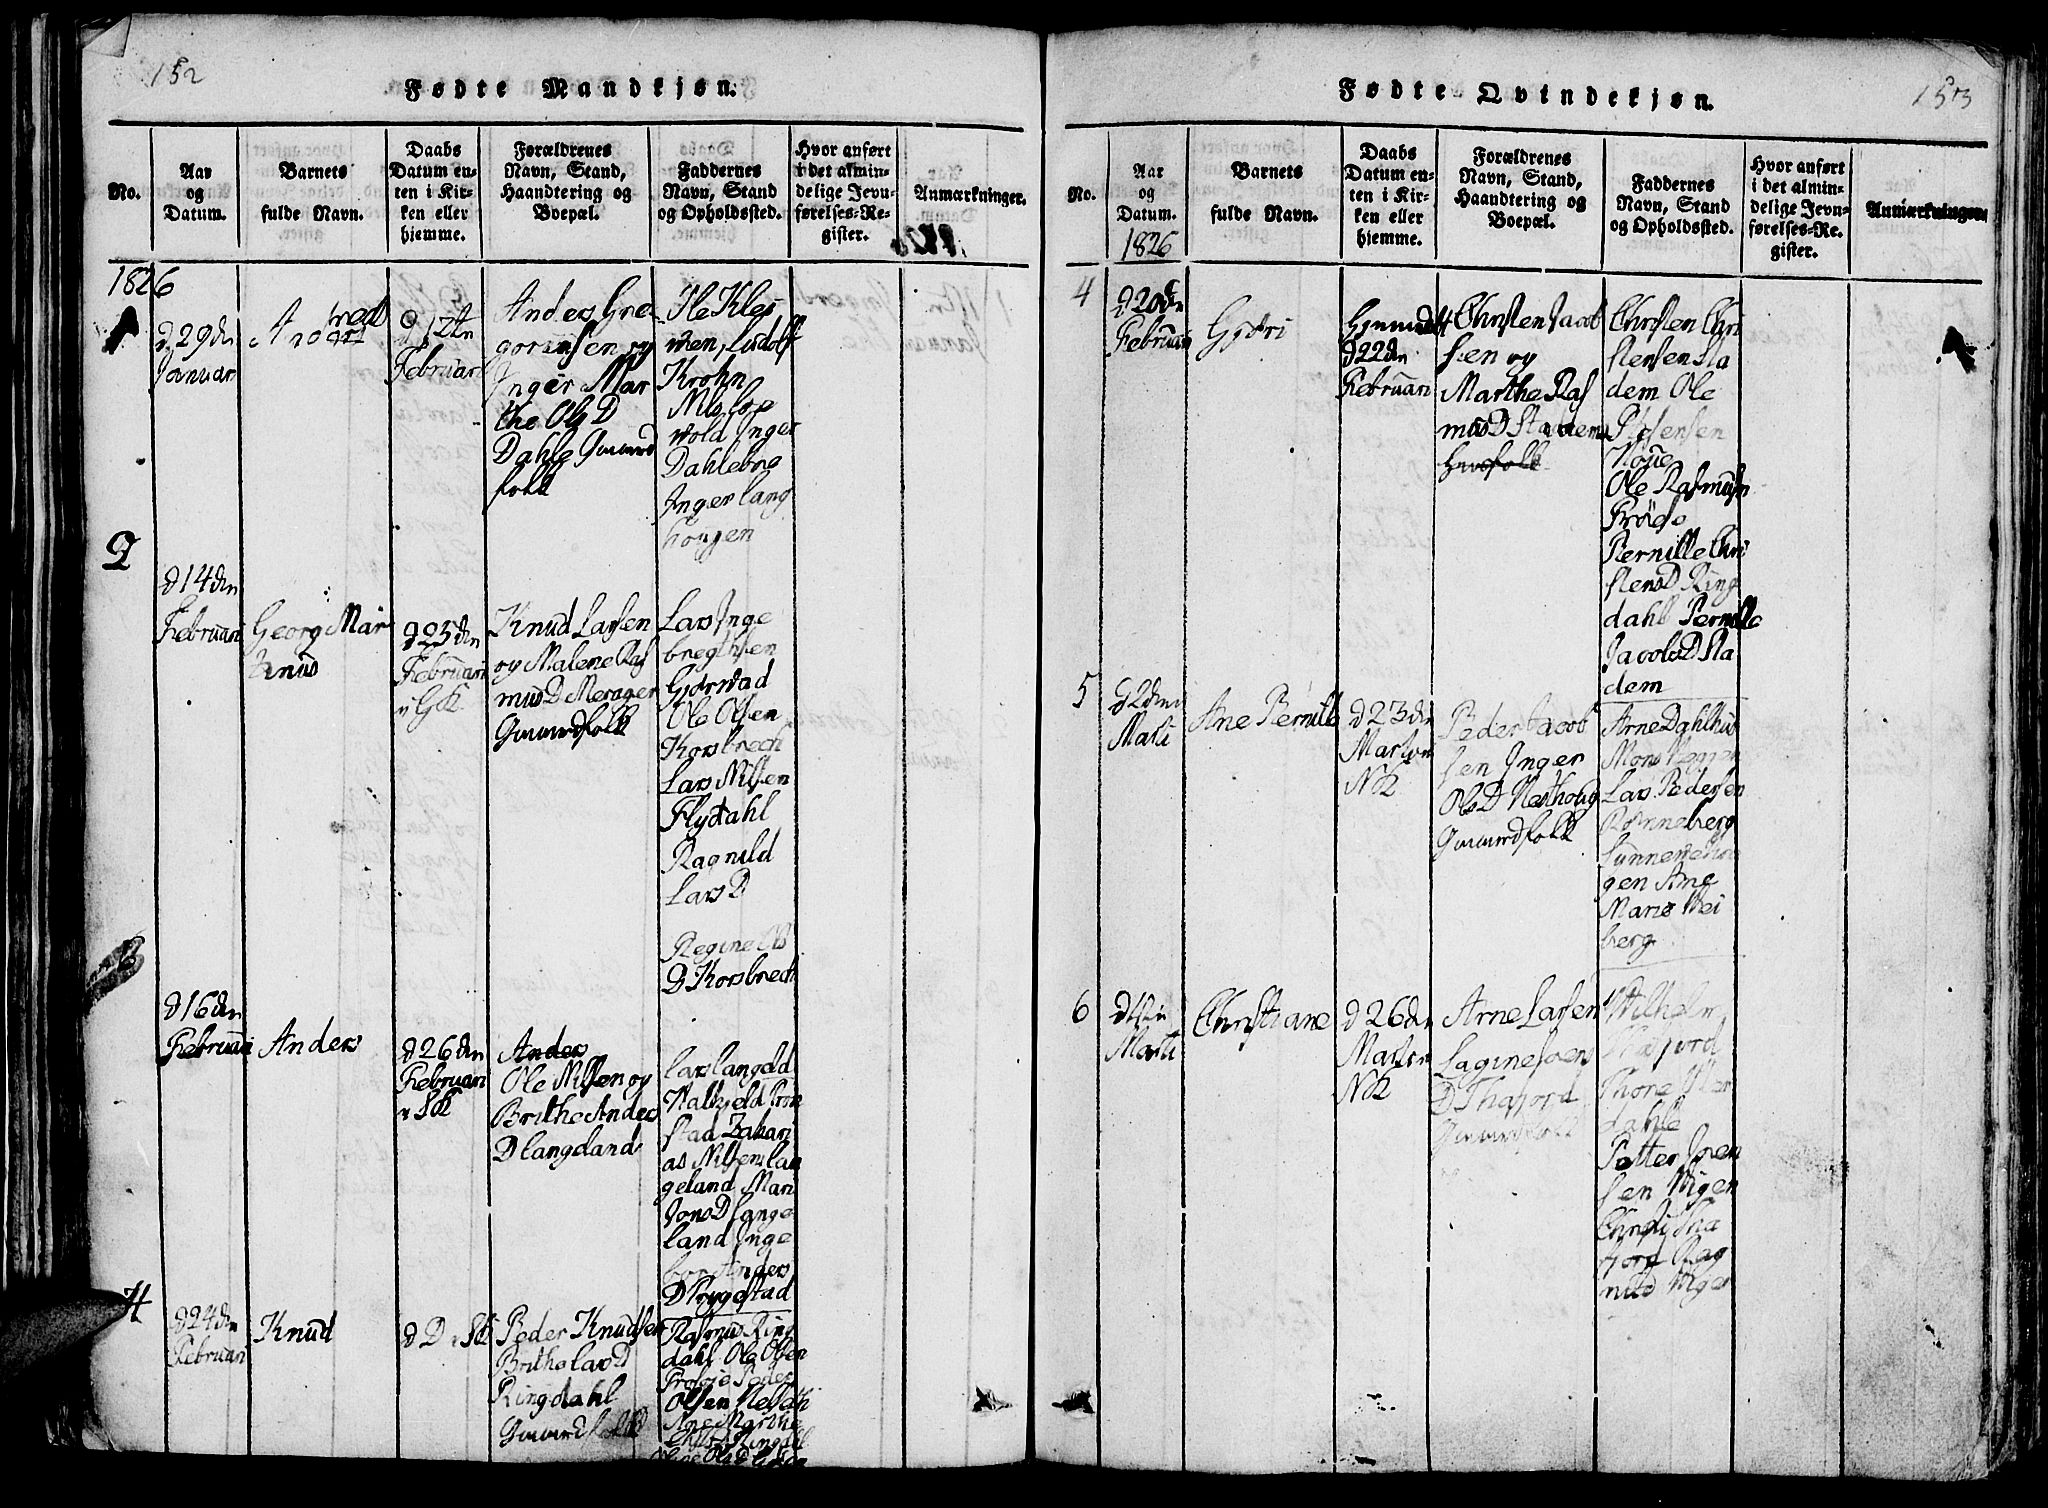 152
Fødte Mandkjøn.
No.
Aar
og
Datum.
Barnets
fulde Navn.
Daabs
Datum en-
ten i Kir-
ken eller
hjemme.
Forældrenes
Navn, Stand,
Haandtering og
Boepæl.
Faddernes
Navn, Stand
og Opholdssted.
Hvor anført
i det almin-
delige Jevn-
førelses-Re-
gister.
Anmærkninger.
1826
1
d 29de
Januar
d 12te
Februar
Anders Gre
gorinsen og
Inger Mar
the Ols D
Dahle Gaard
folk
Ole Klei
men, Ludolf
Krohn
Nils
Inger
Dahlebøe
Inger lang
hougen
2
d 14den
Februari
Georg Mar
knus
d 25de
Februari
i GK
Knud Larsen
og Malene Ras
mus D Merager
Gaardfolk
Lars Inge
bregtsen
Gjørvad
Ole Olsen
Korsbrech
Lars Nilsen
Flydahl
Ragnild
Lars D
Regine Ols
D Korsbrech
3
d 16den
Februari
Anders
d 26den
Februari
i SK
Anders
Ole Nilsen og
Brithe Anders
D langelands
Lars langeld
stad Zakari
as Nilsen lan
geland Mari
Jons D lange
land Inge
bor Anders
D
4
d 24den
Februari
Knud
d D i SK
Peder Knudsen
Brithe Lars D
Ringdahl
Gaardfolk
Rasmus Ring
dahl Ole Olsen
Peder
Olsen
Ane Marthe
Ringdal
153
Fødte Qvindekjøn.
No.
Aar
og
Datum.
1826
Barnets
fulde Navn.
Daabs
Datum en-
ten i Kir-
ken eller
hjemme.
Forældrenes
Navn, Stand,
Haandtering og
Boepæl.
Faddernes
Navn, Stand
og Opholdssted.
Hvor anført
i det almin-
delige Jevn-
førelses-Re-
gister.
Anmærkninger.
4
d 20de
Februari
Gjøri
Hjemmedøbt
d 22de
Februari
Christen Jacob
sen og
Marthe Ras
mus D Stadem
Husfolk
Christen Chri
stensen Sta
dem Ole
Ole Rasmusen
Pernille Chri
stens D Ring
dahl Pernille
Jacobs D Sta
dem
5
d 2den
Marti
Ane Pernille
d 23de
Martii
NK
Peder Jacob
sen Inger
Ols D Nesthoug
Gaardfolk
Arne Dahlhus
Mons
Lars Pedersen
Rønneberg
gen Ane
Marie Wei
berg
6
Marti
Christiane
d 26de
Martii
NK
Arne Larsen
D Thafjord
Gaardfolk
Wilhelm
Thafjord
Thore
dahle
Petter Joen
sen Wigen
Christi Tha
fjord Rag
nild Wigen